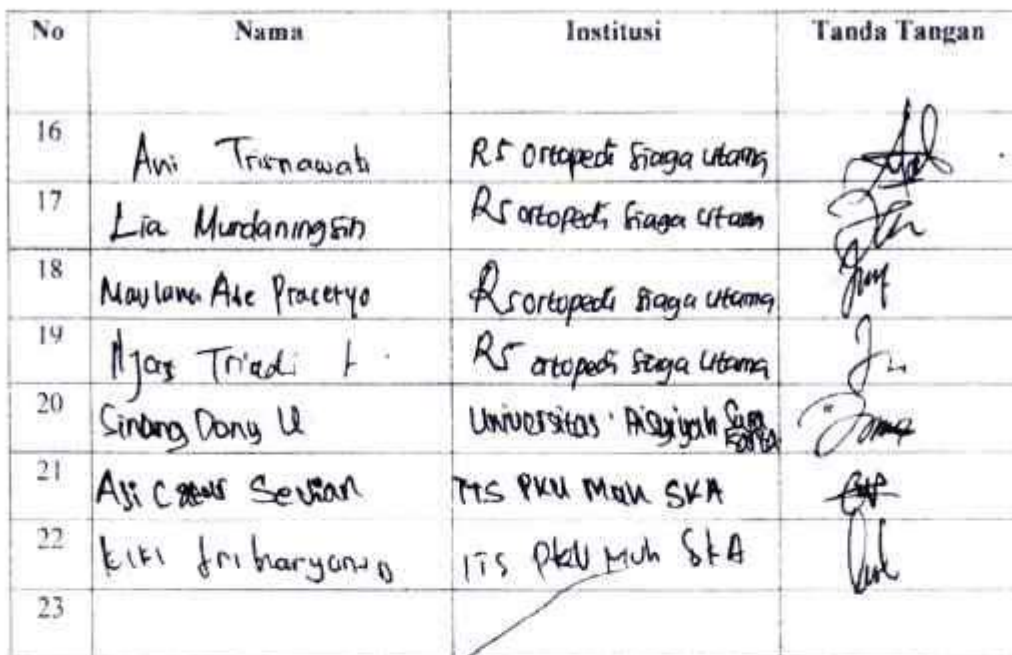 No Nama Institusi Tanda Tangan
16 Ani Trisnawati RS Ortopedi Siaga Utama
17 Lia Murdaningsih RS Ortopedi Siaga Utama
18 Maulana Ade Pracetyo RS ortopedi siaga utama
19 Triadi RS ortopedi siaga utama
20 Dony U Universitas 'Aisyiyah Surakarta
21 Aji Sevian ITS PKU Muh SKA
22 kiki triharyanto ITS PKU Muh SKA
23